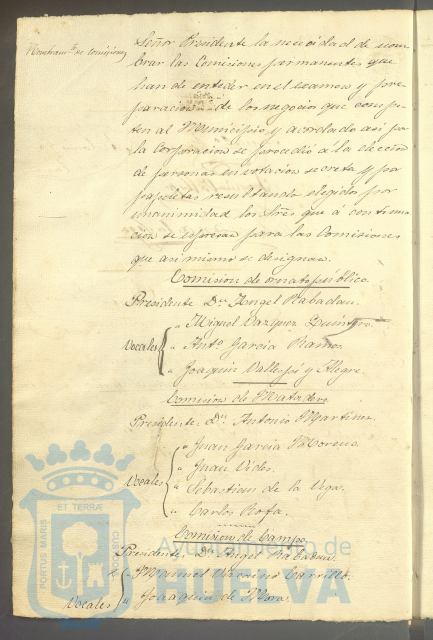 Nombram.to de comisiones
Señor Presidente la necesidad de nom-
brar las Comisiones permanentes que
han de entender en el examen y pre-
paracion de los negocios que compe-
ten al Municipio y acordado asi por
la Corporacion se procedió a la eleccion
de personas en votacion secreta y por
papeletas resultando elegidos por
unanimidad los Sres que á continua-
cion se espresan para las Comisiones
que asi mismo se designan.
Comision de ornato público.
Presidente D.n Angel Rabadan.
" Miguel Vazquez Quintero.
Vocales " Ant.o Garcia Ramos.
" Joaquin Vallejo y Alegre.
Comision de Matadero
Presidente. D.n Antonio Martinez
" Juan Garcia Moreno.
" Juan Vides.
Vocales " Sebastian de la Vega.
" Carlos Rofa.
Comision de Campo
Presidente D.n Angel Rabadan.
" Manuel Moreno Carrillo.
Vocales " Joaquin de Mora.
Ayuntamiento de
HUELVA
PORTUS MARIS
ET TERRÆ
CUSTODIA